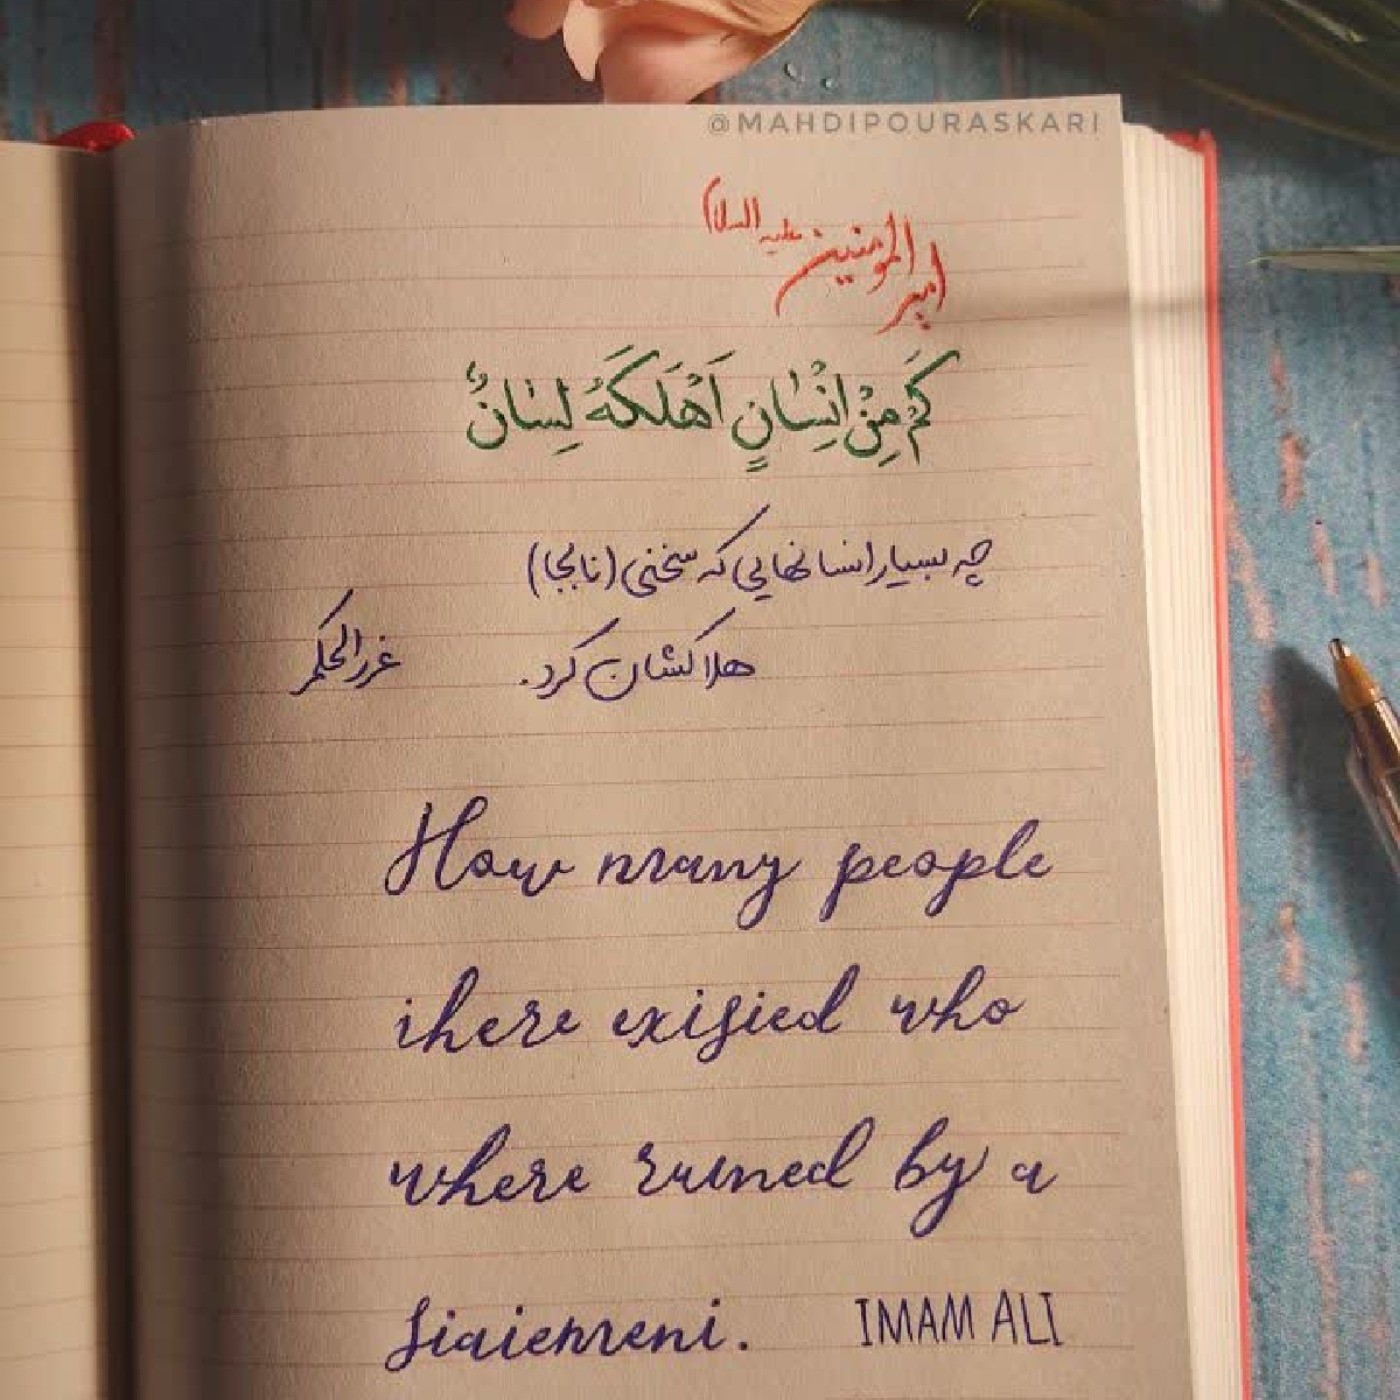 @MAHDIPOURASKARI
امیرالمومنین علیه السلام
كَمْ مِنْ اِنْسٰانٍ اَهْلَكَهُ لِسٰانٌ
چه بسیار انسانهایی که سخنی (نابجا)
هلاکشان کرد. غررالحکم
How many people
there existed who
where ruined by a
statement. IMAM ALI